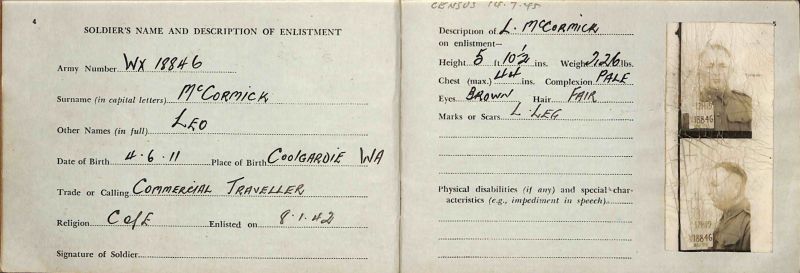 4
SOLDIER'S NAME AND DESCRIPTION OF ENLISTMENT
Army Number WX 18846
Surname (in capital letters) McCORMICK
Other Names (in full) LEO
Date of Birth 4.6.11 Place of Birth COOLGARDIE WA
Trade or Calling COMMERCIAL TRAVELLER
Religion C of E Enlisted on 8.1.42
Signature of Soldier
CENSUS 14.7.45
5
Description of L. McCORMICK
on enlistment—
Height 5 ft. 10½ ins. Weight 226 lbs.
Chest (max.) 44 ins. Complexion PALE
Eyes BROWN Hair FAIR
Marks or Scars L. LEG
Physical disabilities (if any) and special char-
acteristics (e.g., impediment in speech)
18846
18846